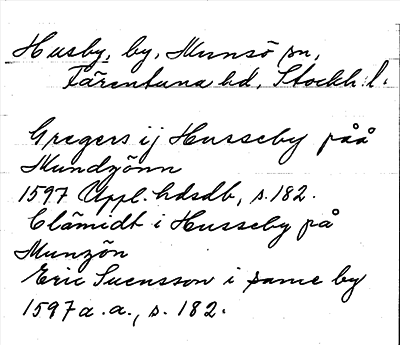 Husby, by, Munsö sn,
Färentuna hd, Stockh. l.
Gregers ij Husseby påå
Mundzönn
1597 Uppl. hdsdb, s. 182.
Clämidt i Husseby på
Munzön
Eric Suensson i same by
1597 a. a., s. 182.